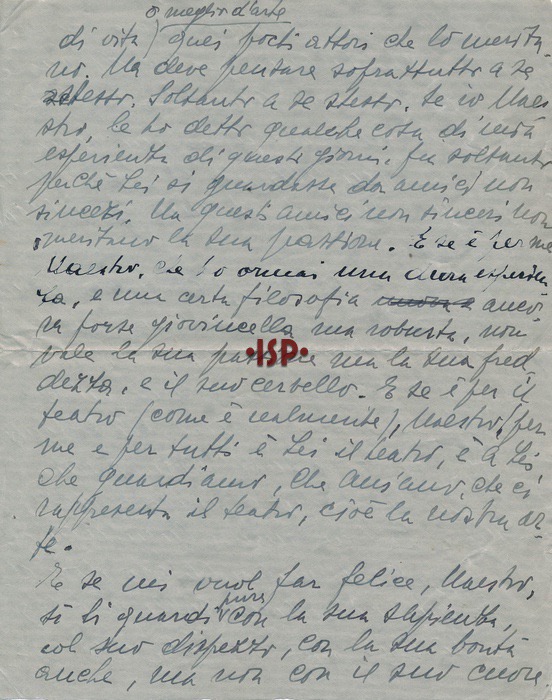 o meglio d'arte
di vita) quei pochi attori che lo merita-
no. Ma deve pensare soprattutto a se
stesso. Soltanto a se stesso. Se io Mae-
stro, le ho detto qualche cosa di mia
esperienza di questi giorni, fu soltanto
perché Lei si guardasse da amici non
sinceri. Ma questi amici non sinceri non
meritano la sua passione. E se è per me
Maestro, che ho ormai una dura esperien-
za, e una certa filosofia anco-
ra forse giovincella ma robusta, non
vale la sua passione ma la sua fred-
dezza, e il suo cervello. E se è per il
teatro (come è realmente), Maestro, per
me e per tutti è Lei il teatro, è a Lei
che guardiamo, che amiamo, che ci
rappresenta il teatro, cioè la nostra ar-
te.
E se mi vuol far felice, Maestro,
si li guardi pure con la sua sapienza,
col suo disprezzo, con la sua bontà
anche, ma non con il suo cuore.
•ISP•